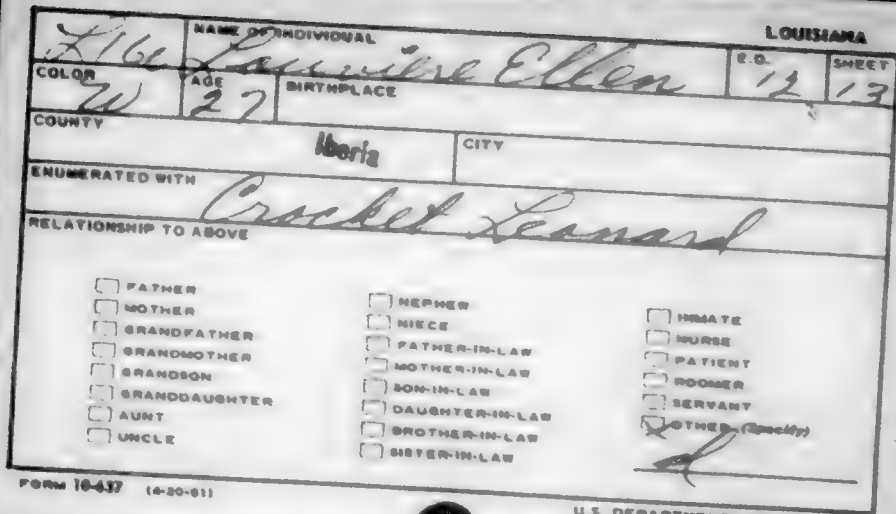 LOUISIANA
NAME OF INDIVIDUAL
E.D.
SHEET
L160 Louviere Ellen 12 13
COLOR
AGE
BIRTHPLACE
W 27
COUNTY
Iberia
CITY
ENUMERATED WITH
Crocket Leonard
RELATIONSHIP TO ABOVE
FATHER
MOTHER
GRANDFATHER
GRANDMOTHER
GRANDSON
GRANDDAUGHTER
AUNT
UNCLE
NEPHEW
NIECE
FATHER-IN-LAW
MOTHER-IN-LAW
SON-IN-LAW
DAUGHTER-IN-LAW
BROTHER-IN-LAW
SISTER-IN-LAW
INMATE
NURSE
PATIENT
ROOMER
SERVANT
OTHER (Specify)
FORM 10-637 (4-20-61)
U.S.